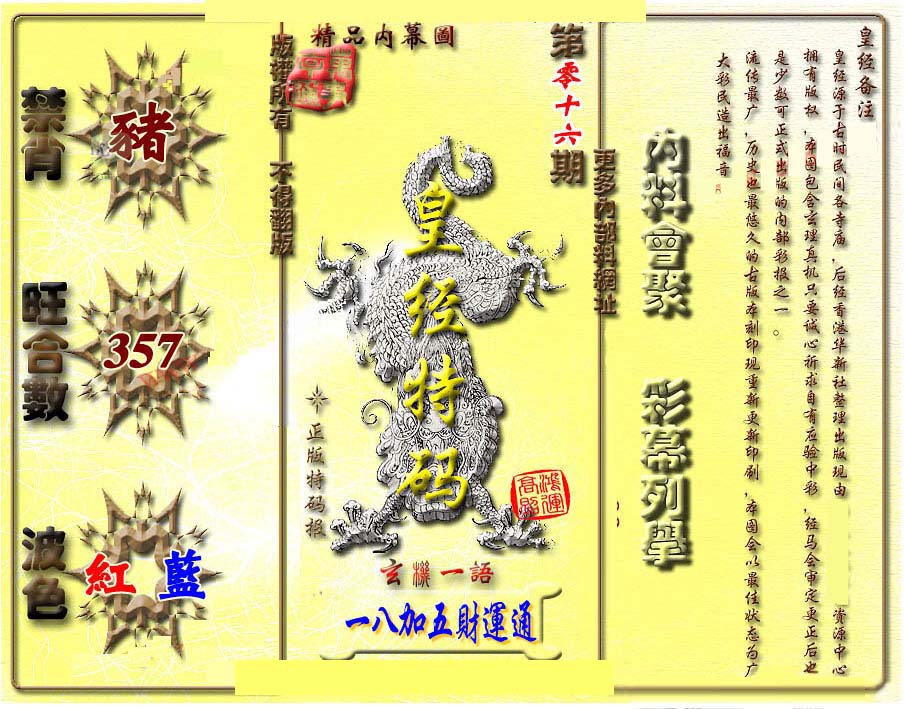 皇经备注
皇经源于古时民间各寺庙，后经香港华新社整理出版现由
资源中心
拥有版权，本图包含玄理真机只要诚心祈求自有应验中彩，经马会审定更正后也
是少数可正式出版的内部彩报之一。
流传最广，历史也最悠久的古版本刻印现重新更新印刷，本图会以最佳状态为广
大彩民造出福音
内料會聚
彩幕列舉
更多內部料網址
第零十六期
精品内幕圖
皇经特码
正版特码报
鴻運
高照
玄機一語
一八加五財運通
版權所有 不得翻版
禁肖
豬
旺合數
357
波色
紅 藍